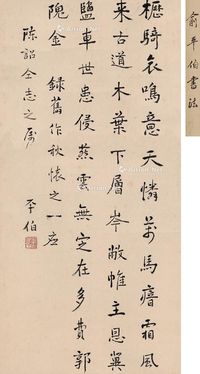 俞平伯書法
櫪哀鳴意天憐萬馬瘖霜風
來古道木葉下層岑敝帷主恩
鹽車世患侵燕無定在多費郭
隗金 錄舊作秋懷之一應
陳詔同志之屬
平伯